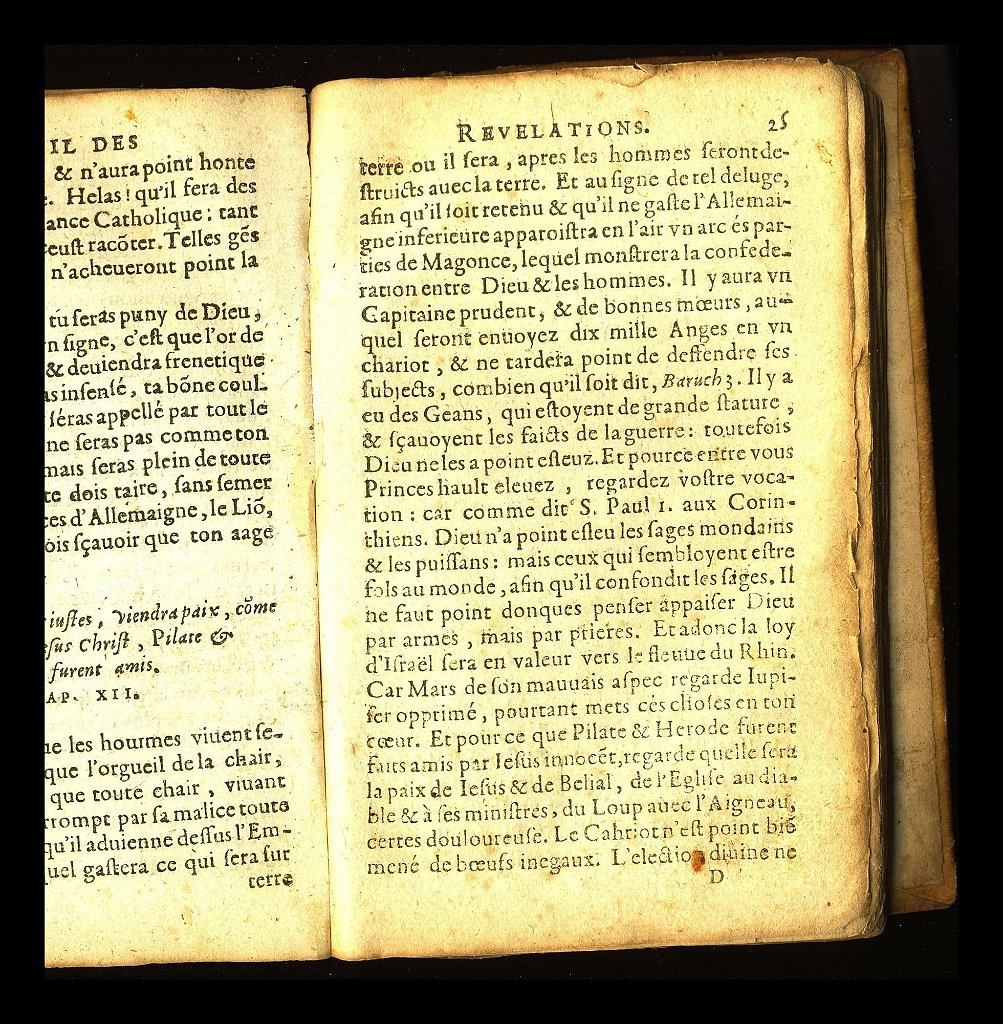 IL DES
& n'aura point honte
. Helas! qu'il fera des
ance Catholique: tant
eust racõter. Telles gẽs
n'acheueront point la
tu seras puny de Dieu,
n signe, c'est que l'or de
& deuiendra frenetique
as insensé, ta bõne coul-
séras appellé par tout le
ne seras pas comme ton
mais seras plein de toute
te dois taire, sans semer
ces d'Allemaigne, le Liõ,
ois sçauoir que ton aage
iustes, viendra paix, cõme
esus Christ, Pilate &
furent amis.
AP. XII.
ue les hommes viuent se-
que l'orgueil de la chair,
que toute chair, viuant
rrompt par sa malice toute
qu'il aduienne dessus l'Em-
quel gastera ce qui sera sur
terre
REVELATIONS. 25
terre ou il sera, apres les hommes seront de-
structs auec la terre. Et au signe de tel deluge,
afin qu'il soit retenu & qu'il ne gaste l'Allemai-
gne inferieure apparoistra en l'air vn arc és par-
ties de Magonce, lequel monstrera la confede-
ration entre Dieu & les hommes. Il y aura vn
Capitaine prudent, & de bonnes mœurs, au-
quel seront enuoyez dix mille Anges en vn
chariot, & ne tardera point de deffendre ses
subjects, combien qu'il soit dit, Baruch 3. Il y a
eu des Geans, qui estoyent de grande stature,
& sçauoyent les faicts de la guerre: toutefois
Dieu ne les a point esleuz. Et pource entre vous
Princes hault eleuez, regardez vostre voca-
tion: car comme dit S. Paul 1. aux Corin-
thiens. Dieu n'a point esleu les sages mondains
& les puissans: mais ceux qui sembloyent estre
fols au monde, afin qu'il confondit les sages. Il
ne faut point donques penser appaiser Dieu
par armes, mais par prieres. Et adonc la loy
d'Israël sera en valeur vers le fleuue du Rhin.
Car Mars de son mauuais aspec regarde Iupi-
ter opprimé, pourtant mets ces choses en ton
cœur. Et pour ce que Pilate & Herode furent
faits amis par Iesus innocẽt, regarde quelle sera
la paix de Iesus & de Belial, de l'Eglise au dia-
ble & à ses ministres, du Loup auec l'Aigneau,
certes douloureuse. Le Cahriot n'est point biẽ
mené de bœufs inegaux. L'election diuine ne
D